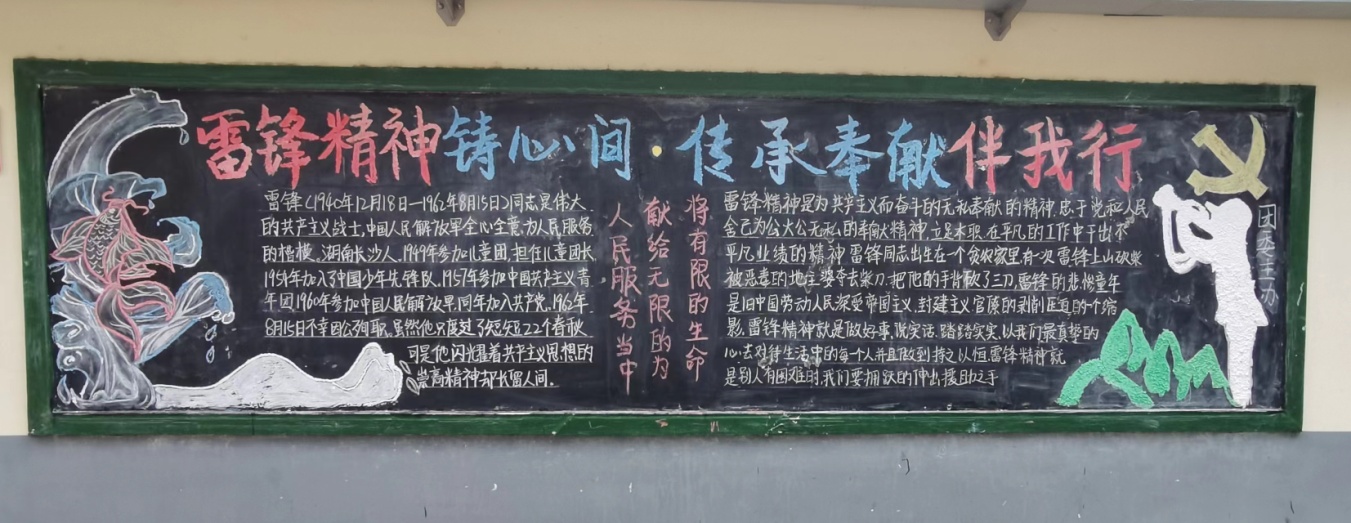 雷锋精神铸心间·传承奉献伴我行
雷锋(1940年12月18日—1962年8月15日)同志是伟大
的共产主义战士,中国人民解放军全心全意,为人民服务
的楷模。湖南长沙人。1949年参加儿童团,担任儿童团长
1954年加入了中国少年先锋队,1957年参加中国共产主义青
年团1960年参加中国人民解放军,同年加入共产党,196年
8月15日不幸因公殉职,虽然他只度过了短短22个春秋
可是他闪耀着共产主义思想的
崇高精神却长留人间.
将有限的生命
献给无限的为
人民服务当中
雷锋精神是为共产主义而奋斗的无私奉献的精神,忠于党和人民
舍己为公大公无私的奉献精神,立足本职在平凡的工作中干出不
平凡业绩的精神雷锋同志出生在一个贫农家里有一次雷锋上山砍柴
被恶毒的地主婆夺去柴刀.把他的手背砍了三刀,雷锋的悲惨童年
是旧中国劳动人民深受帝国主义,封建主义官僚的剥削压迫的一个缩
影.雷锋精神就是做好事,说实话.踏踏实实.以我们最真挚的
心去对待生活中的每个人并且做到持之以恒雷锋精神就
是别人有困难时,我们要踊跃的伸出援助之手
团委主办